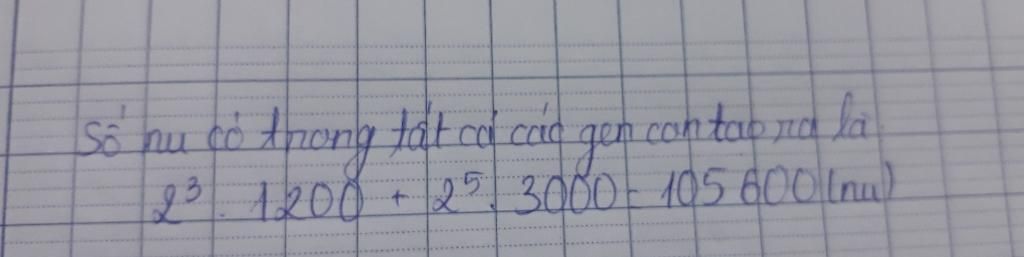 Số nu có trong tất cả các gen con tạo ra là
2³. 1200 + 2⁵. 3000 = 105 600 (nu)